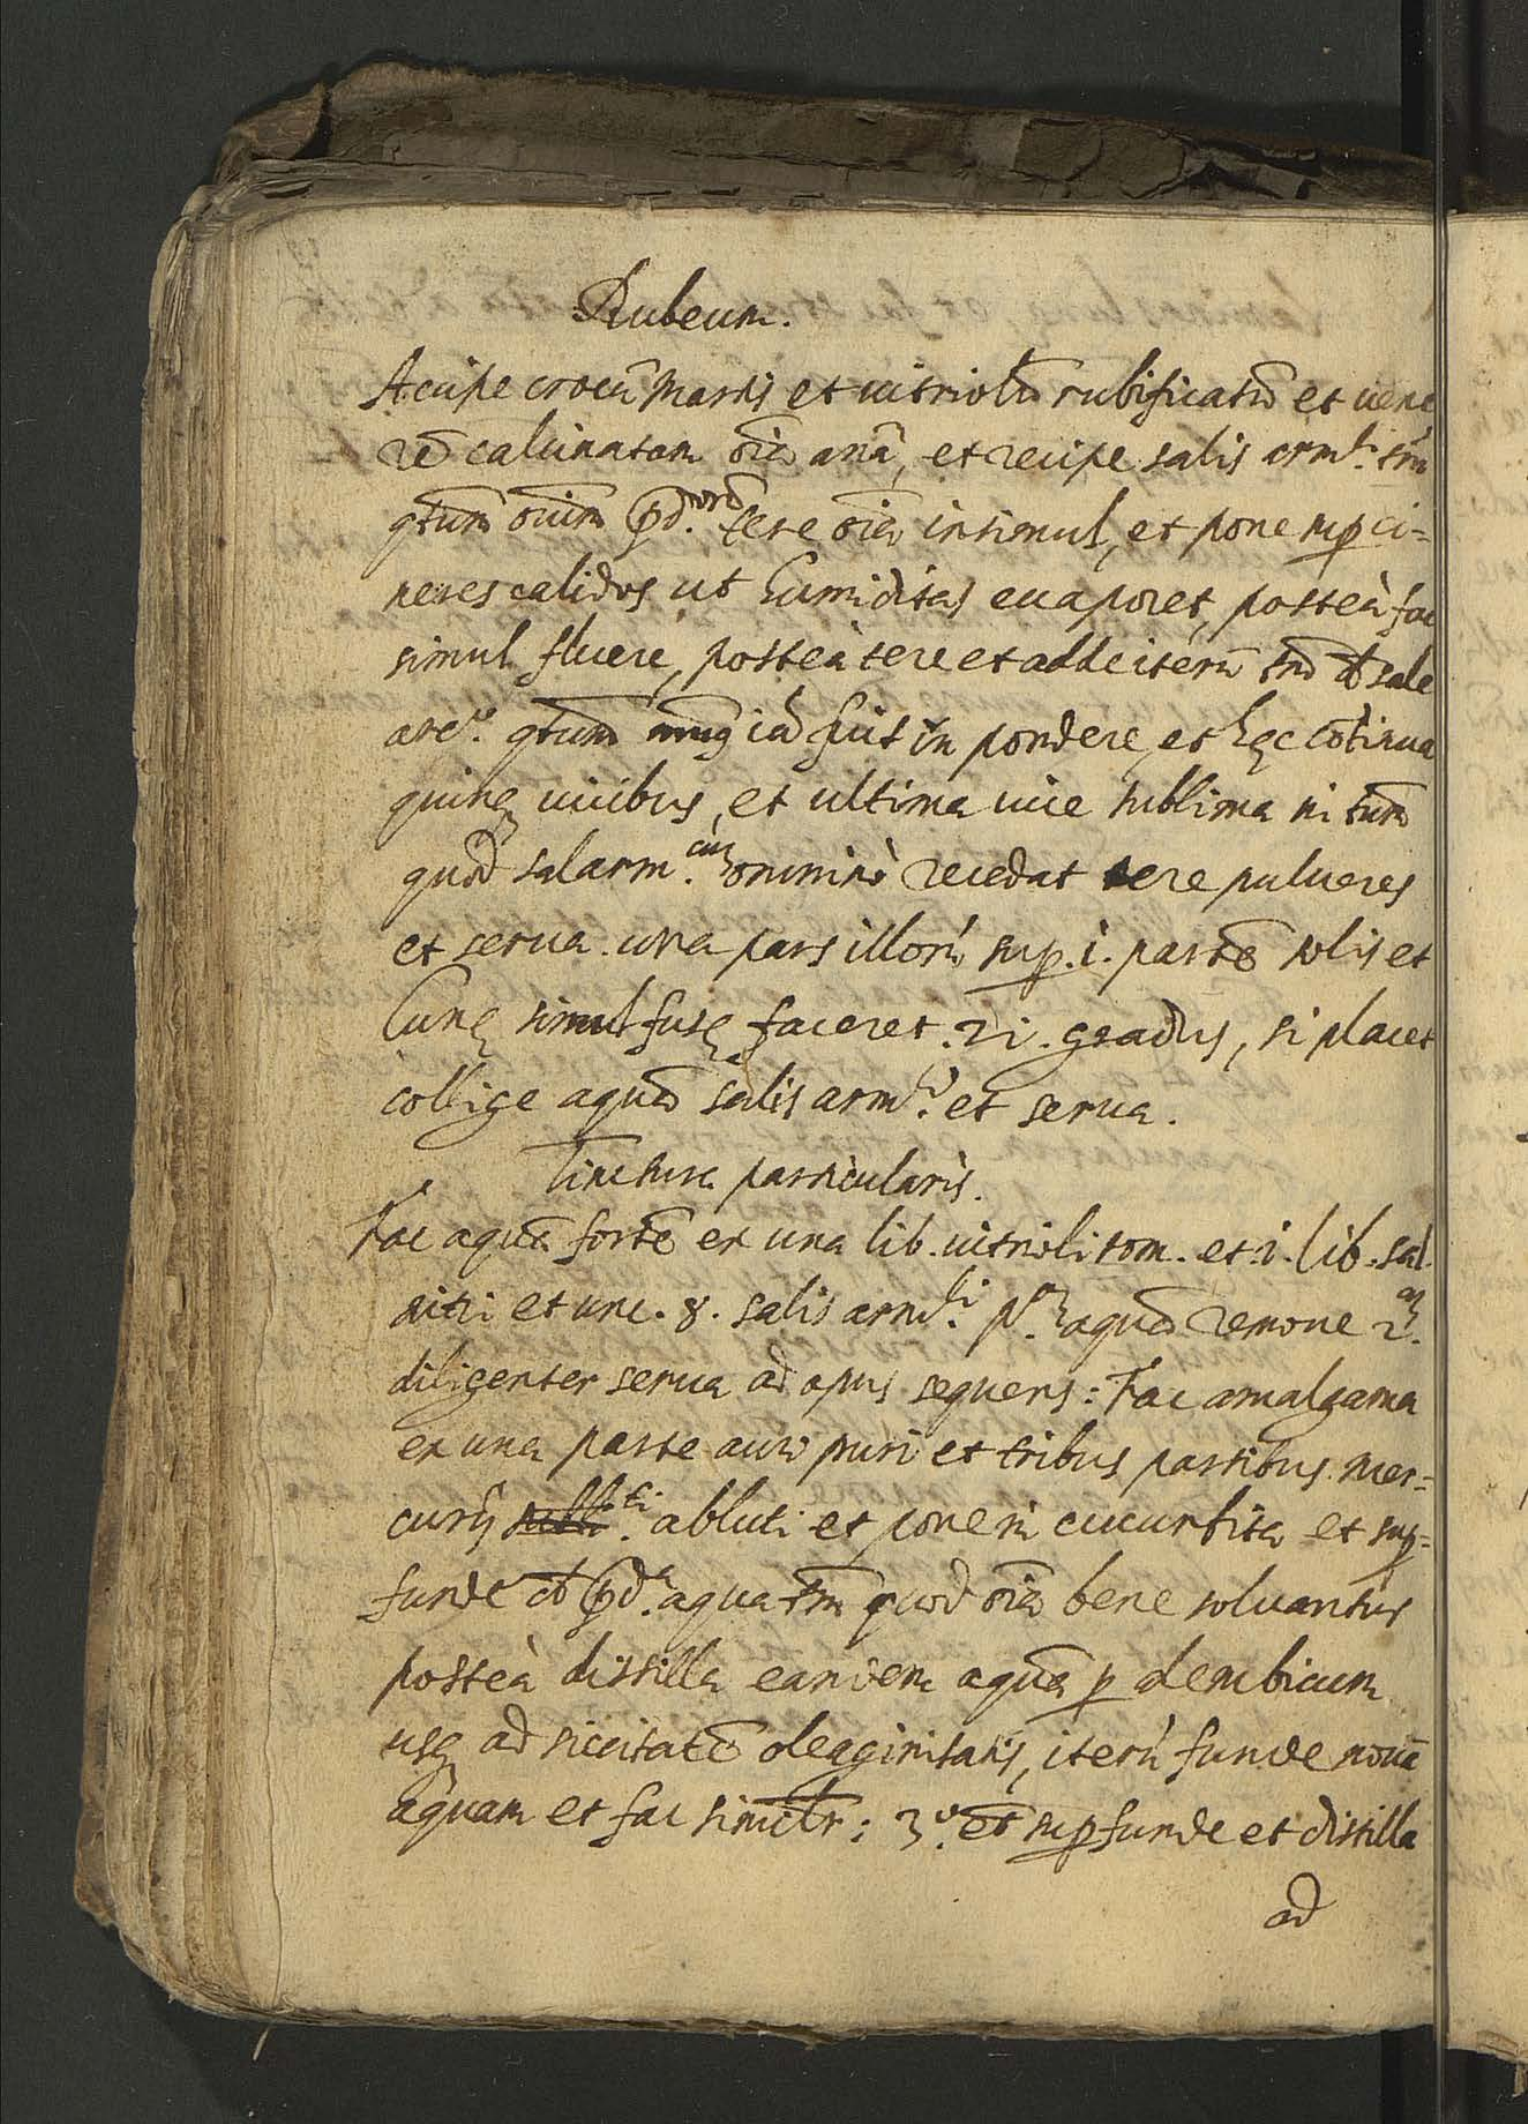 Rubeum.
Accipe crocũ Martis et uitriolũ rubificatũ et uene
rẽ calcinatam oĩa anã, et recipe salis arm.ci tm̃
qtum̃ oĩum p̱d.orũ tere oĩa insimul, et pone sup̱ ci=
neres calidos ut humiditas euaporet, posteà fac
simul fluere, posteà tere et adde iterũ tm̃ de sale
qtum̃ iã fuit in pondere, et hęc cõtinua
quinq uicibus, et ultima uice sublima in tm̃
quod salarm.cũ omninò recedat tere pulueres
et serua. una pars illorũ sup̱. i. partẽ solis et
Lunę simul fusę faceret. 21. gradus, si placet
collige aquã salis arm.ci et serua.
Tinctura particularis.
Fac aquã fortẽ ex una lib. uitrioli rom. et .i. lib. sal
nitri et unc. 8. salis arm.ci p.am aquã remoue 2.am
diligenter serua ad opus sequens: Fac amalgama
ex una parte auri puri et tribus partibus Mer=
curij abluti et pone in cucurbita et sup̱=
funde de p̱d.a aqua tm̃ quod oĩa bene soluantur
posteà distilla eandem aquã p̱ alembicum
usq ad siccitatẽ oleaginitatis, iterũ funde nouã
aquam et fac simil̃r: 3.o et sup̱funde et distilla
ad